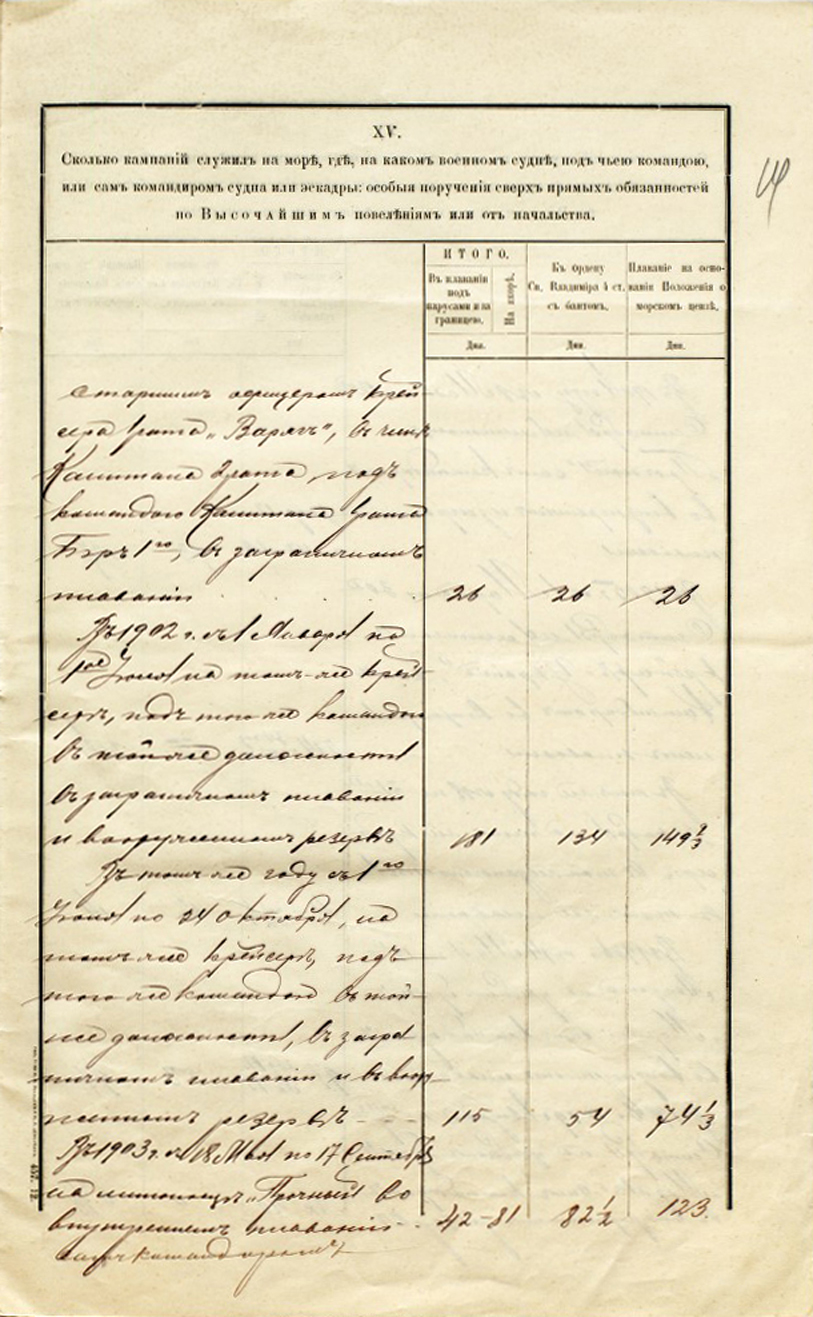 XV.
Сколько кампаній служилъ на морѣ, гдѣ, на какомъ военномъ суднѣ, подъ чьею командою,
или самъ командиромъ судна или эскадры: особыя порученія сверхъ прямыхъ обязанностей
по Высочайшимъ повелѣніямъ или отъ начальства.
ИТОГО.
Въ плаваніи подъ парусами и за границею.
На якорѣ.
Къ ордену Св. Владиміра 4 ст. съ бантомъ.
Плаваніе на основаніи Положенія о морскомъ цензѣ.
Дни.
Дни.
Дни.
Старшимъ офицеромъ Крей-
сера Iранга „Варягъ", въ чинѣ
Капитана 2ранга подъ
командою Капитана Iранга
Бэръ 1го, въ заграничномъ
плаваніи 26 26 26
Въ 1902 г. съ 1 Января по
1ое Іюня на томъ-же крей-
серѣ, подъ тою же командою
въ той же должности
въ заграничномъ плаваніи
и вооруженномъ резервѣ 181 134 149 2/3
Въ томъ же году съ 1го
Іюня по 24 Октября, на
томъ же крейсерѣ, подъ
тою же командою въ той
же должности, въ загра
ничномъ плаваніи и въ воору
женномъ резервѣ 115 54 74 1/3
Въ 1903 г. съ 18 Мая по 17 Сентябрь
на миноносцѣ „Прочный" во
внутреннемъ плаваніи 42-81 82 1/2 123.
самъ командиромъ